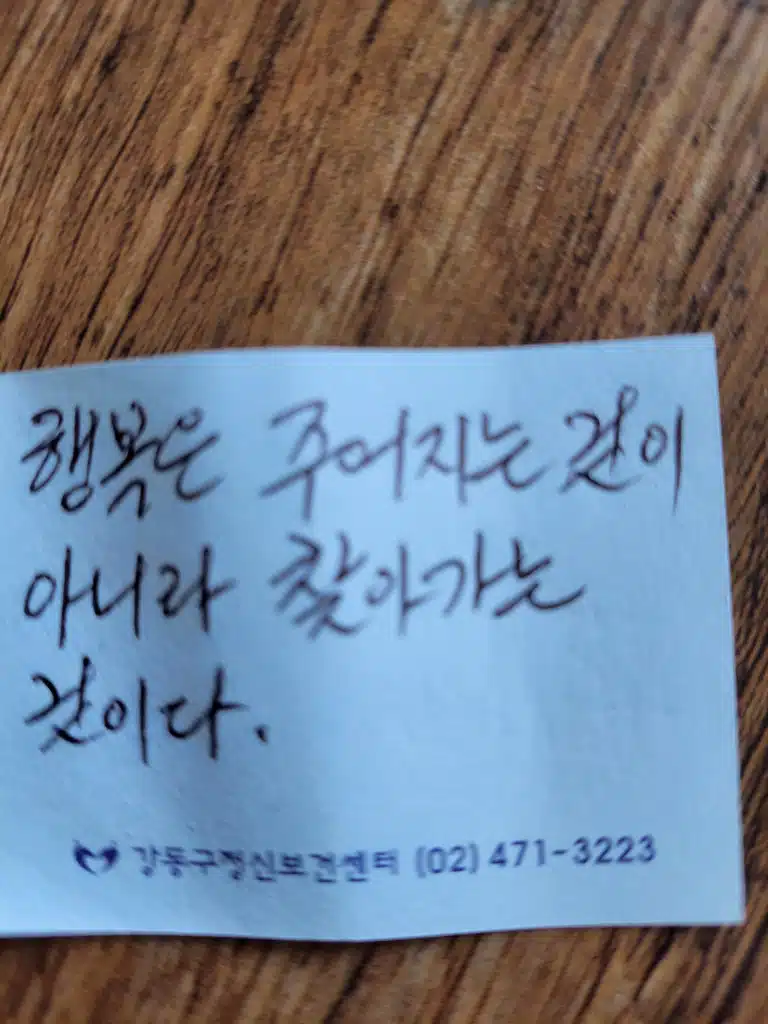 행복은 주어지는 것이
아니라 찾아가는
것이다.
강동구정신보건센터 (02) 471-3223